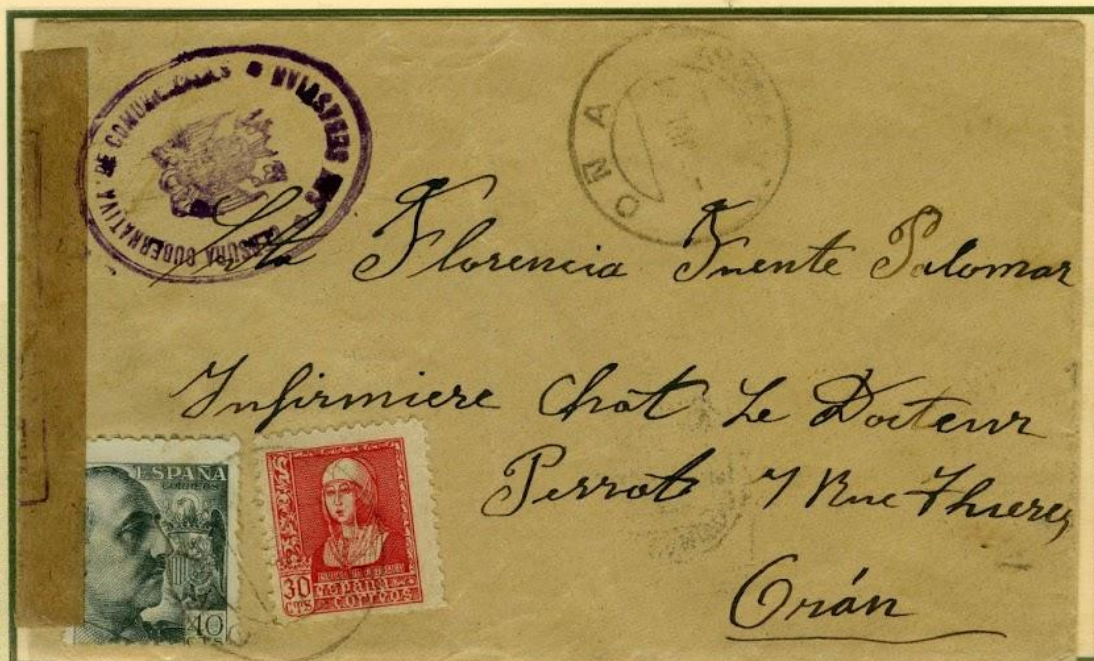 CENSURA GUBERNATIVA DE COMUNICACIONES
SAN SEBASTIAN
ONA
Srta Florencia Fuente Palomar
Infirmiere Chot Le Docteur
Perrot 7 Rue Thieres
Orán
ESPAÑA
CORREOS
40
CTS
ISABEL LA CATOLICA
30
CTS
ESPAÑA
CORREOS